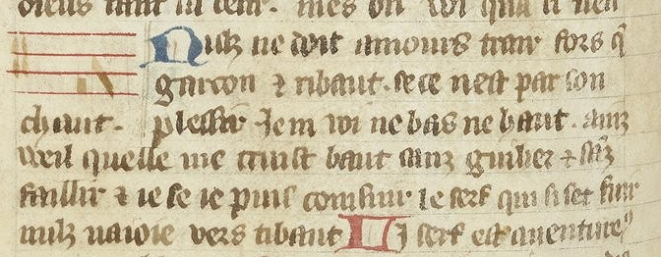 nulz ne doit amours trair fors q̃
garcon ⁊ ribaut. se ce nest par son
chaut. plesir Jem voi ne bas ne haut. ainz
vueil quelle me truist baut sanz guiler ⁊ sãz
faillir ⁊ ie se ie puis consiuir le serf qui si set fuir
nulz na ioie vers tibaut Li serf est auentureˀ